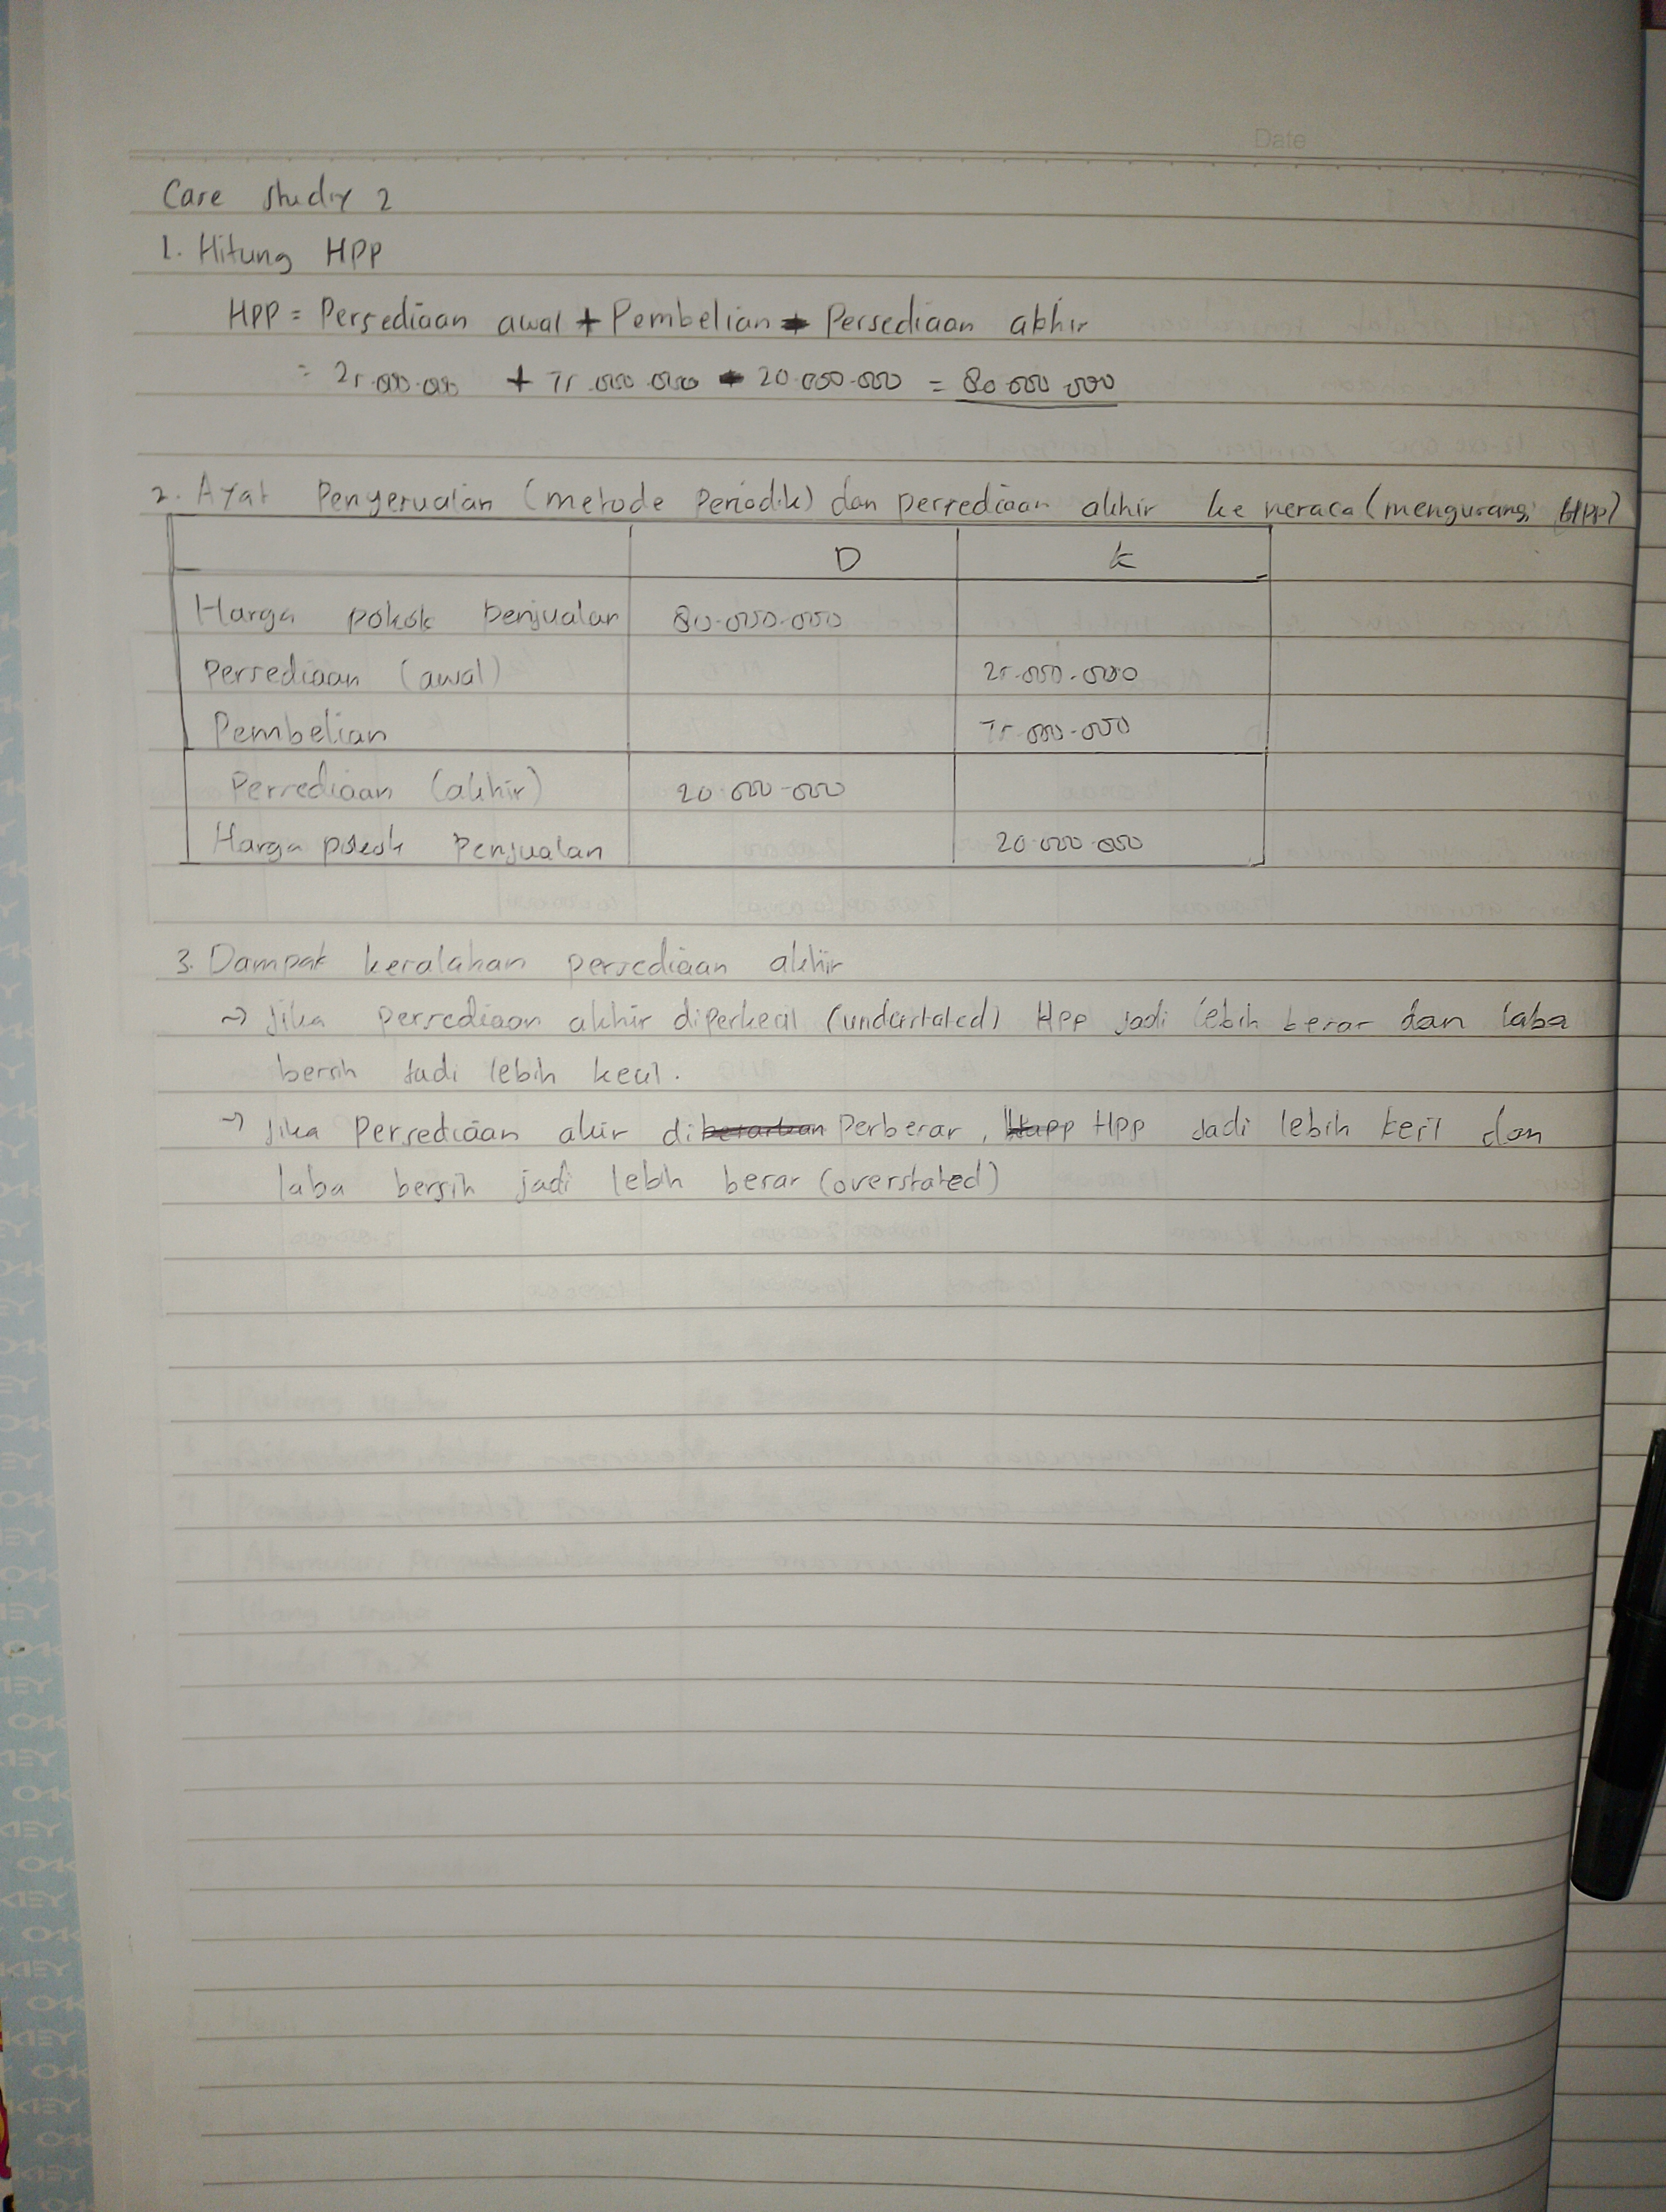 Date
Case study 2
1. Hitung HPP
HPP = Persediaan awal + Pembelian - Persediaan akhir
= 25.000.000 + 75.000.000 - 20.000.000 = 80.000.000
2. Ayat Penyesuaian (metode Periodik) dan persediaan akhir ke neraca (mengurangi HPP)
D K
Harga pokok penjualan 80.000.000
Persediaan (awal) 25.000.000
Pembelian 75.000.000
Persediaan (akhir) 20.000.000
Harga pokok Penjualan 20.000.000
3. Dampak kesalahan persediaan akhir
→ Jika persediaan akhir diperkecil (understated) HPP jadi lebih besar dan laba
bersih jadi lebih kecil.
→ Jika Persediaan akir diperbesar, HPP jadi lebih kecil dan
laba bersih jadi lebih besar (overstated)